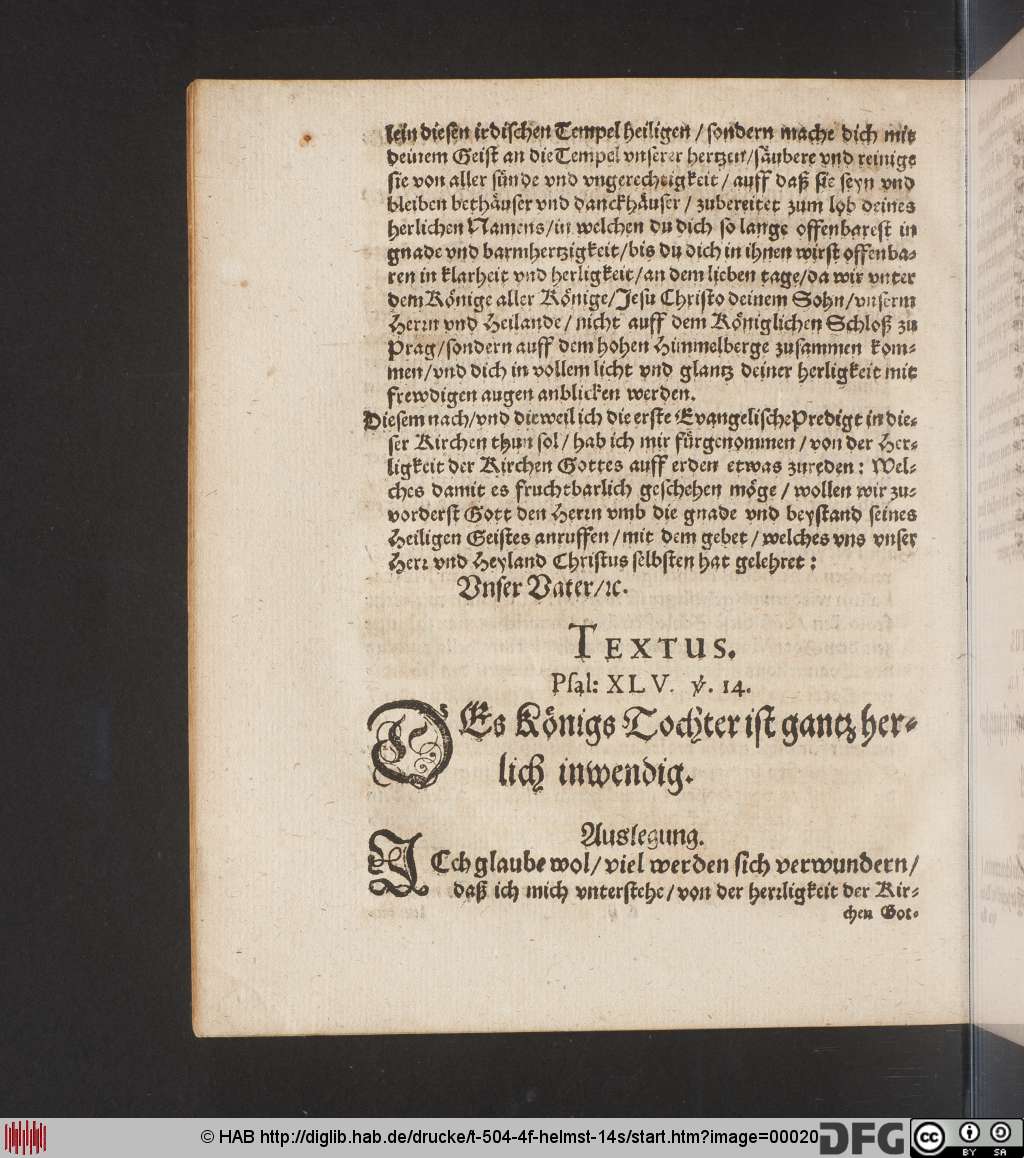 lein diesen irdischen Tempel heiligen / sondern mache dich mit
deinem Geist an die Tempel vnserer hertzen/säubere vnd reinige
sie von aller sünde vnd vngerechtigkeit / auff daß sie seyn vnd
bleiben bethäuser vnd danckhäuser / zubereitet zum lob deines
herlichen Namens/in welchen du dich so lange offenbarest in
gnade vnd barmhertzigkeit/bis du dich in ihnen wirst offenba-
ren in klarheit vnd herligkeit/an dem lieben tage/da wir vnter
dem Könige aller Könige/Jesu Christo deinem Sohn/vnserm
Herrn vnd Heilande / nicht auff dem Königlichen Schloß zu
Prag/sondern auff dem hohen Himmelberge zusammen kom-
men/vnd dich in vollem licht vnd glantz deiner herligkeit mit
frewdigen augen anblicken werden.
Diesem nach/vnd dieweil ich die erste Evangelische Predigt in die-
ser Kirchen thun sol / hab ich mir fürgenommen / von der Her-
ligkeit der Kirchen Gottes auff erden etwas zureden: Wel-
ches damit es fruchtbarlich geschehen möge / wollen wir zu-
vorderst Gott den Herrn vmb die gnade vnd beystand seines
Heiligen Geistes anruffen / mit dem gebet / welches vns vnser
Herr vnd Heyland Christus selbsten hat gelehret:
Vnser Vater/ꝛc.
TEXTUS.
Psal: XLV. ℣. 14.
DEs Königs Tochter ist gantz her-
lich inwendig.
Auslegung.
ICch glaube wol/ viel werden sich verwundern/
daß ich mich vnterstehe/ von der herrligkeit der Kir-
chen Got-
© HAB http://diglib.hab.de/drucke/t-504-4f-helmst-14s/start.htm?image=00020
DFG
cc
BY SA